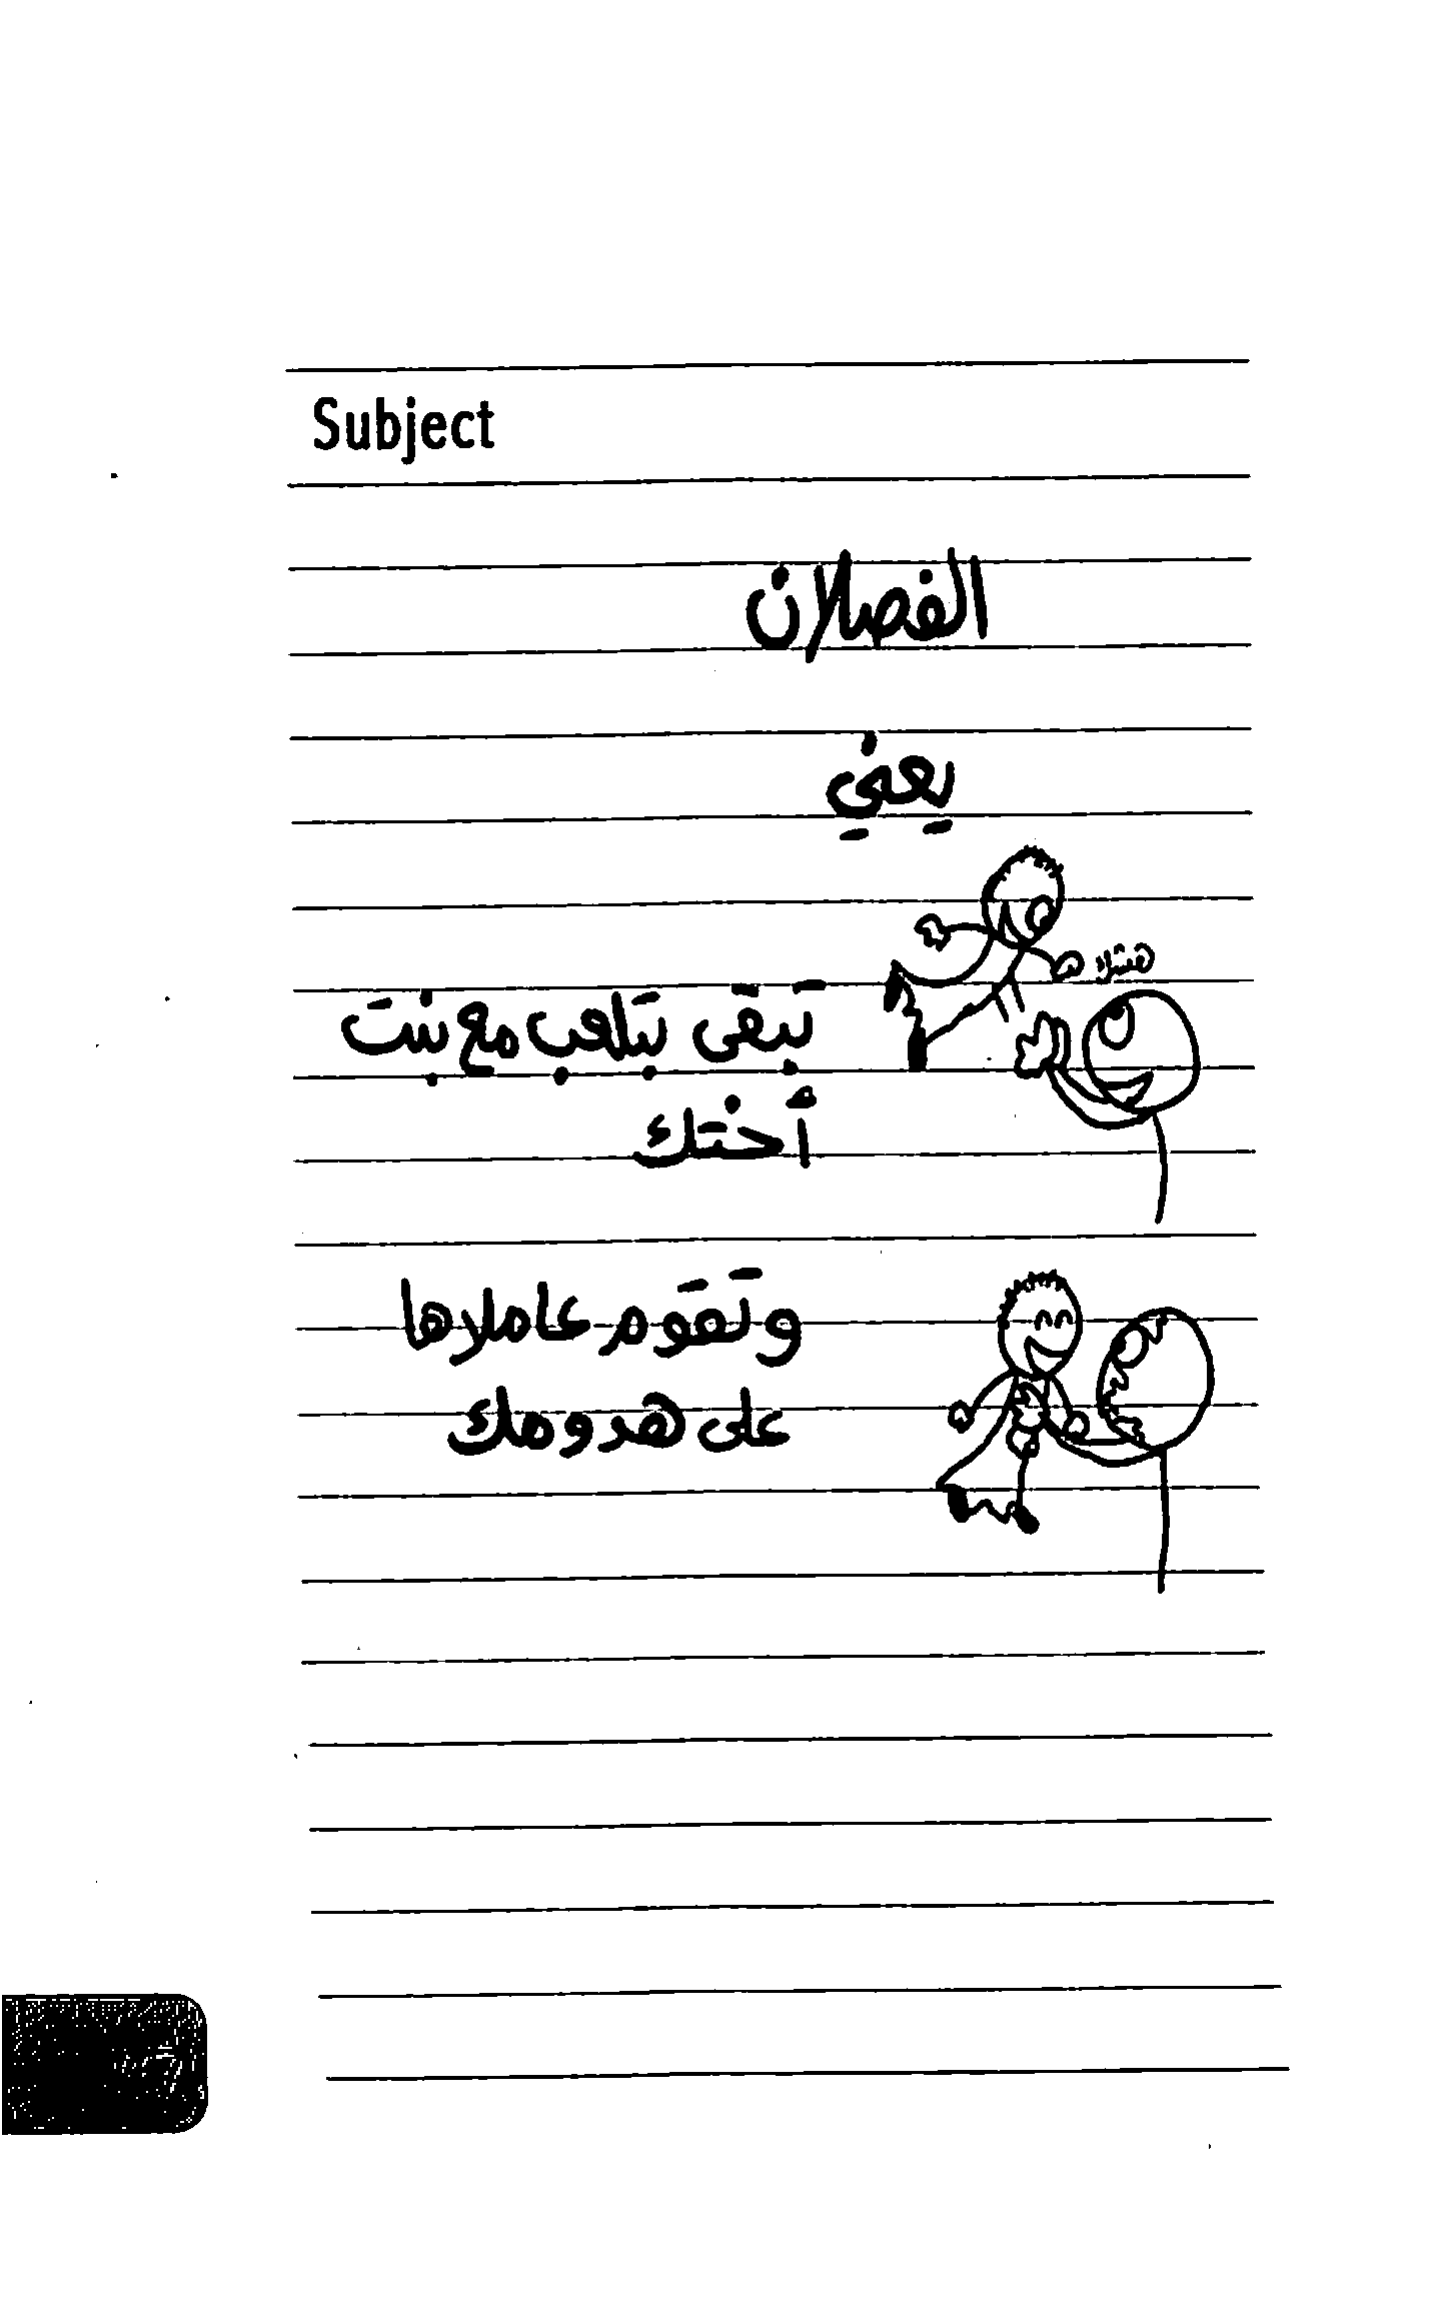 Subject
الفصلان
يعني
تبقى بتلعب مع بنت
أختك
وتقوم عاملاها
على هدومك